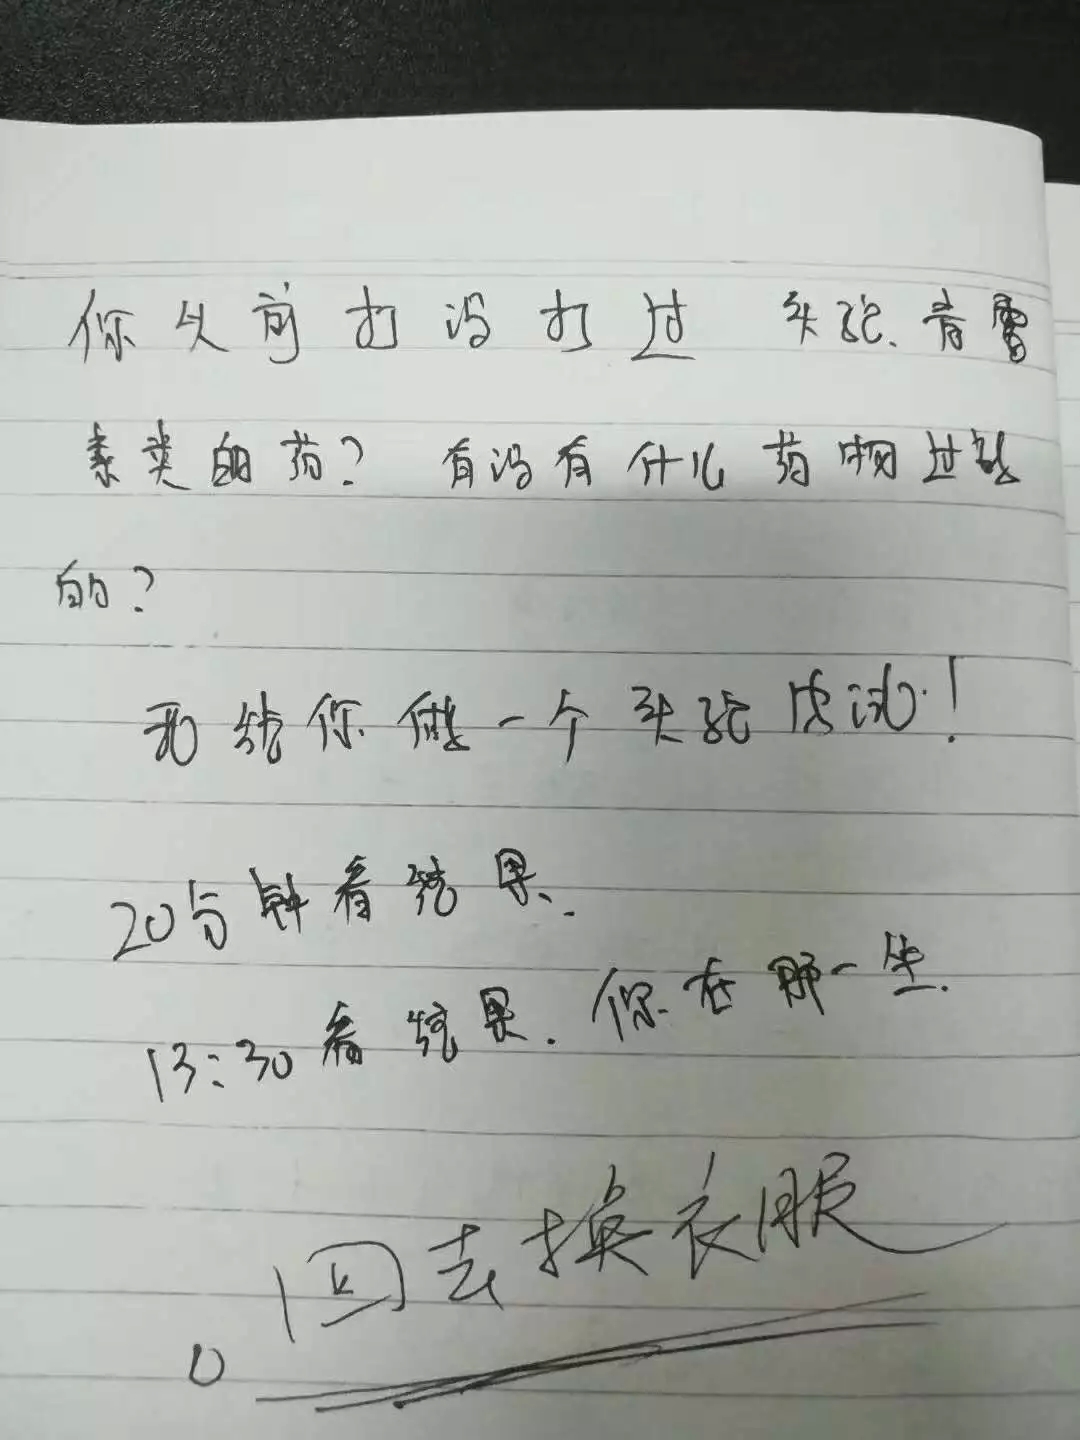 你以前打没打过 头孢、青霉
素类的药？ 有没有什么药物过敏
的？
我给你做一个头孢皮试！
20分钟看结果.
13:30看结果. 你在那一坐.
回去换衣服